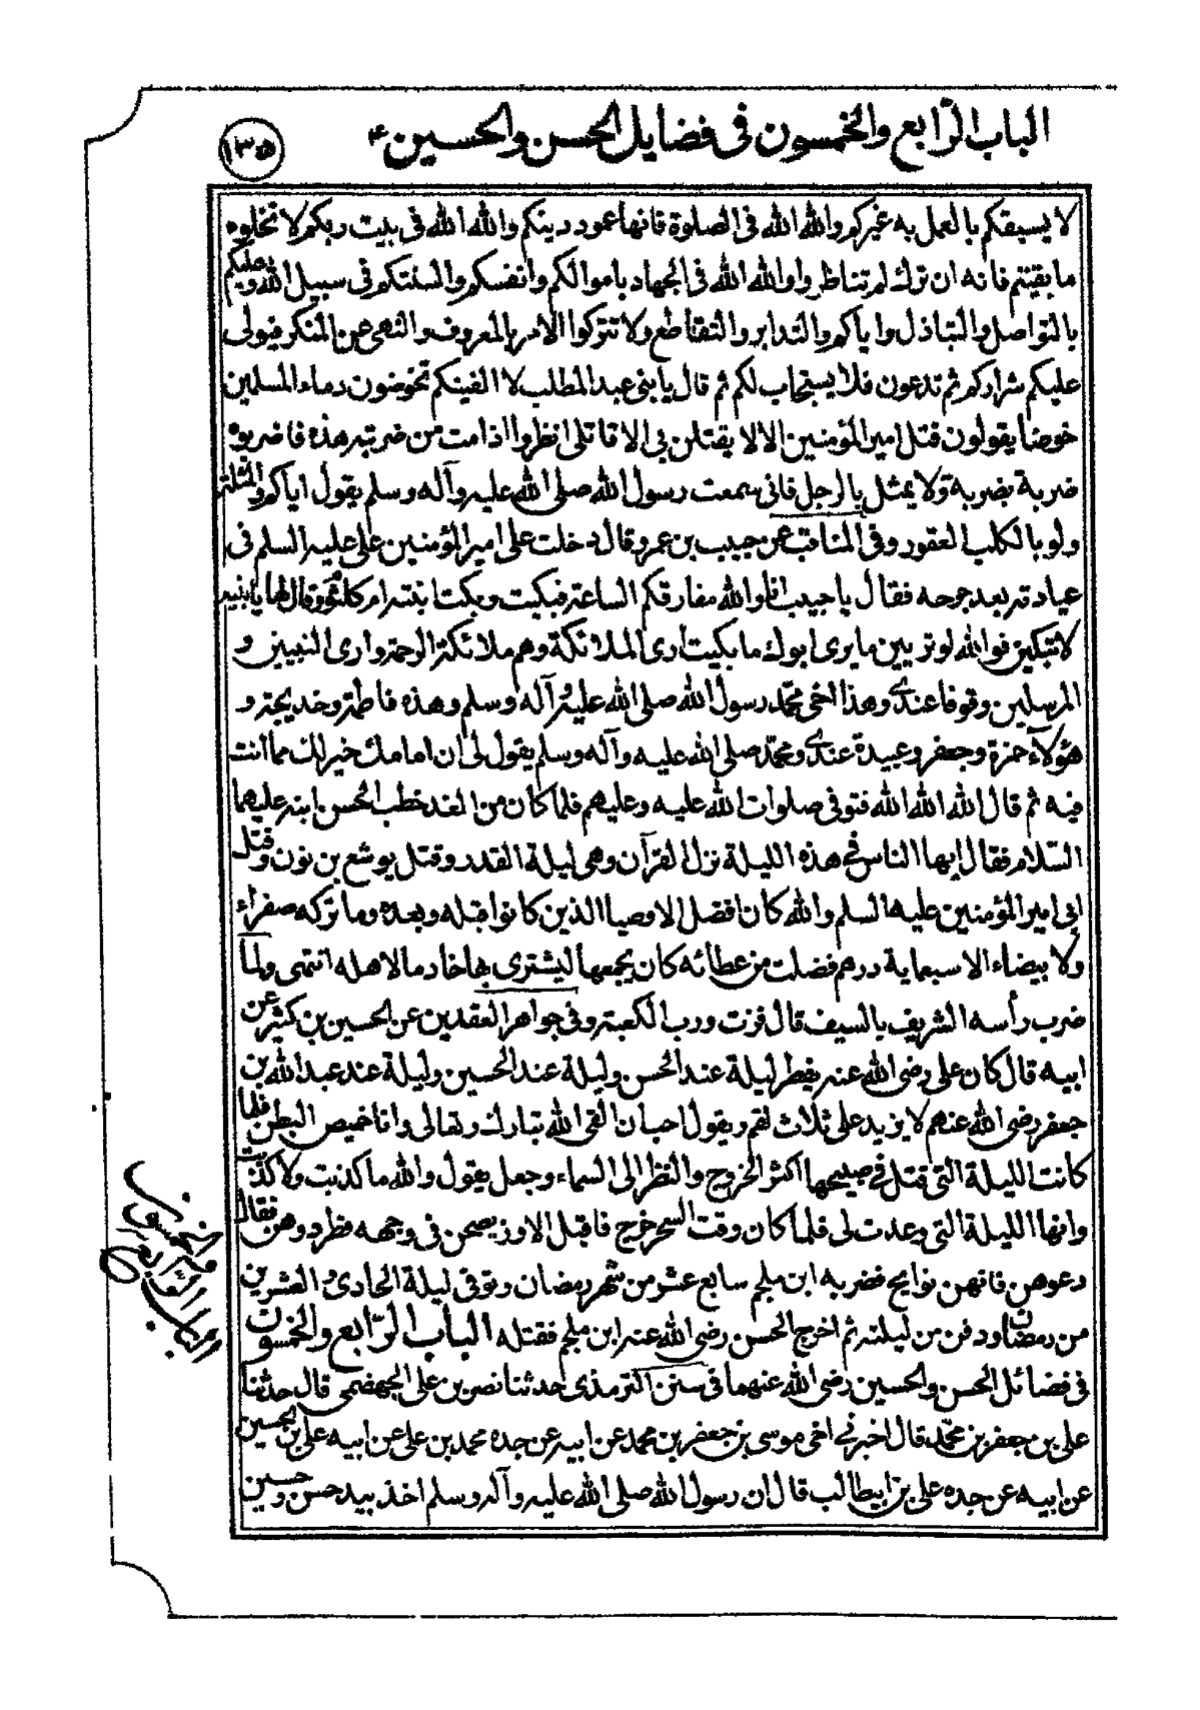 الباب الرّابع والخمسون فى فضايل الحسن والحسين ع
١٣٥
لا يسبقكم بالعمل به غيركم والله الله فى الصلوة فانها عمود دينكم والله الله فى بيت ربكم لا تخلوه
ما بقيتم فانه ان ترك لم تناظروا والله الله فى الجهاد باموالكم وانفسكم والسنتكم فى سبيل الله وعليكم
بالتواصل والتباذل واياكم والتدابر والتقاطع ولا تتركوا الامر بالمعروف والنهى عن المنكر فيولى
عليكم شراركم ثم تدعون فلا يستجاب لكم ثم قال يا بنى عبد المطلب لا الفينكم تخوضون دماء المسلمين
خوضا يقولون قتل امير المؤمنين الا لا يقتلن بى الا قاتلى انظروا اذا مت من ضربته هذه فاضربوه
ضربة بضربة ولا يمثل بالرجل فانى سمعت رسول الله صلى الله عليه وآله وسلم يقول اياكم والمثلة
ولو بالكلب العقور وفى المناقب عن حبيب بن عمرو قال دخلت على امير المؤمنين على عليه السلم فى
عيادته بعد جرحه فقال يا حبيب انا والله مفارقكم الساعة فبكيت وبكت ابنته ام كلثوم وقال لها يا بنية
لا تبكين فوالله لو تريين ما يرى ابوك ما بكيت أرى الملائكة وهم ملائكة الرحمة وارى النبيين و
المرسلين وقوفا عندى وهذا اخى محمّد رسول الله صلى الله عليه وآله وسلم وهذه فاطمة وخديجة و
هؤلاء حمزة وجعفر وعبيدة عندى ومحمّد صلى الله عليه وآله وسلم يقول لى ان امامك خير لك مما انت
فيه ثم قال الله الله الله فتوفى صلوات الله عليه وعليهم فلما كان من الغد خطب الحسن ابنه عليهما
السّلام فقال ايها الناس فى هذه الليلة نزل القرآن وهى ليلة القدر وقتل يوشع بن نون وقتل
ابى امير المؤمنين عليه السلم والله كان افضل الاوصيا الذين كانوا قبله وبعده وما تركه صفراء
ولا بيضاء الا سبعماية درهم فضلت من عطائه كان يجمعها ليشترى بها خادما لاهله انتهى ولمّا
ضرب رأسه الشريف بالسيف قال فزت ورب الكعبة وفى جواهر العقدين عن الحسين بن كثير عن
ابيه قال كان على رضى الله عنه يفطر ليلة عند الحسن وليلة عند الحسين وليلة عند عبد الله بن
جعفر رضى الله عنهم لا يزيد على ثلاث لقم ويقول احب ان القى الله تبارك وتعالى وانا خميص البطن فلما
كانت الليلة التى قتل فى صبيحها اكثر الخروج والنظر الى السماء وجعل يقول والله ما كذبت ولا كذبت
وانها الليلة التى وعدت لى فلما كان وقت السحر خرج فاقبل الاوز يصحن فى وجهه فطردوهن فقال
دعوهن فانهن نوايح فضربه ابن ملجم سابع عشر من شهر رمضان وتوفى ليلة الحادى والعشرين
من رمضان ودفن من ليلته ثم اخرج الحسن رضى الله عنه ابن ملجم فقتله الباب الرّابع والخمسون
فى فضائل الحسن والحسين رضى الله عنهما فى سنن الترمذى حدثنا نصر بن على الجهضمى قال حدثنا
على بن جعفر بن محمّد قال اخبرنى اخى موسى بن جعفر بن محمد عن ابيه عن جده محمد بن على عن ابيه على بن الحسين
عن ابيه عن جده على بن ابيطالب قال ان رسول الله صلى الله عليه وآله وسلم اخذ بيد حسن وحسين
الباب الرّابع والخمسون